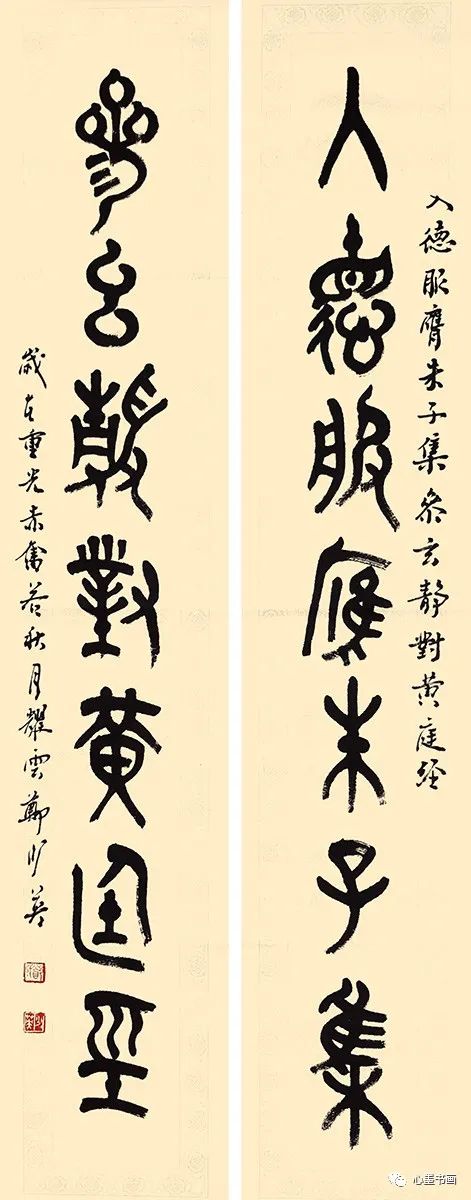 入德服膺朱子集
入德服膺朱子集参玄静對黄庭经
參玄靜對黃庭經
歲在重光赤奮若秋月耀雲鄭少英
心墨书画